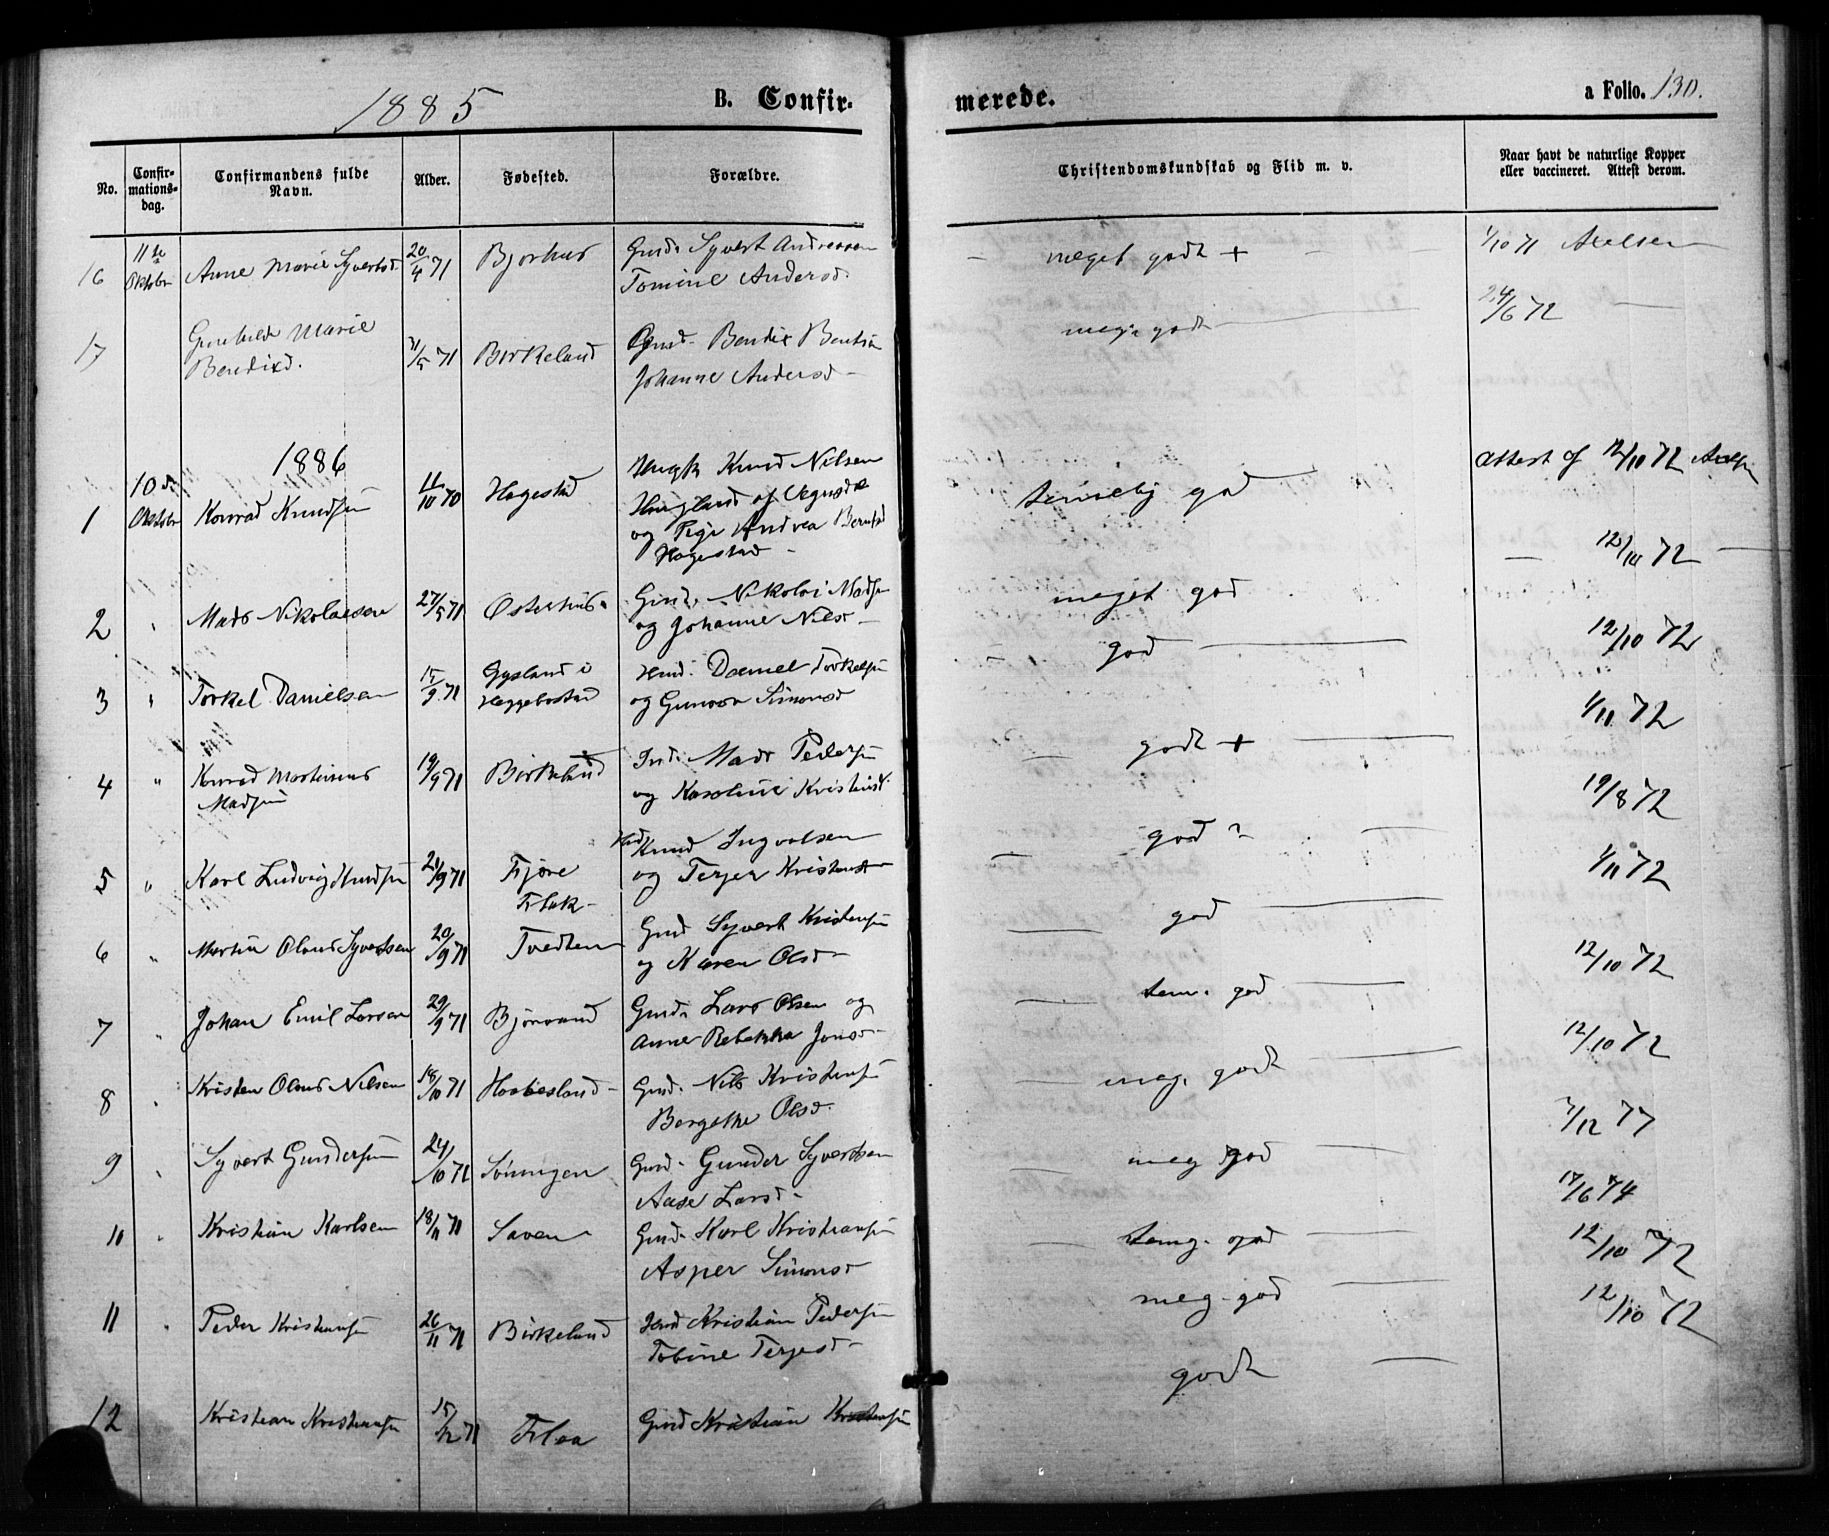 1885
B. Confir-
merede.
a Folio. 130.
No.
Confir-
mations-
dag.
Confirmandens fulde
Navn.
Alder.
Fødested.
Forældre.
Christendomskundskab og Flid m. v.
Naar havt de naturlige Kopper
eller vaccineret. Attest derom.
16 11te Oktober Anne Marie Syvertsd. 20/4 71 Bjorhus Gmd. Syvert Andreasen
Tomine Andersd. meget godt + 1/10 71 Axelsen
17 Gunhilde Marie
Bendixd. 71 Birkeland Bendix Bentsen
Johanne Andersd. meg. godt 24/6 72
1886
1 10de Oktober Konrad Knudsen 11/10 70 Hagestad Ungk Knud Nilsen
og Andrea
Hagestad temmelig god Attest af 12/10 72
2 " Mads Nikolaisen 27/5 71 Østerhus Gmd. Nikolai Madsen
og Johanne Nilsd. meget god 12/10 72
3 " Torkel Danielsen 15/9 71 Gysland i
Heggebostad Hmd. Daniel Torkelsen
og Gunvor Simonsd god 12/10 72
4 " Konrad Martinius
Madsen 19/9 71 Birkeland Ind. Mads Pedersen
og Karoline Kristensd. godt + 1/11 72
5 " Karl Ludvig Knudsen 21/9 71 Fjøre
Flak Hmd Knud Ingvalsen
og Terjer Kristensd god ? 19/8 72
6 " Martin Olaus Syvertsen 20/9 71 Tvedten Gmd Syvert Kristensen
og Karen Olsd god 1/11 72
7 " Johan Emil Larsen 29/9 71 Bjorvand Gmd. Lars Olsen og
Anne Rebekka Jonsd tem. god 12/10 72
8 " Kristen Olaus Nilsen 18/10 71 Haabesland Gmd. Nils Kristensen
Bergethe Olsd. meg. godt 12/10 72
9 " Syvert Gundersen 24/10 71 Gmd. Gunder Syvertsen
Aase Larsd meg god 7/12 77
10 " Kristian Karlsen 18/11 71 Saven Gmd. Karl Kristiansen
Asper Simonsd temg. god 17/6 74
11 " Peder Kristiansen 26/11 71 Birkeland Ind Kristian Pedersen
Tobine Terjesd meg. god 12/10 72
12 Kristian Kristiansen 15/12 71 Flaa Gmd Kristian Kristensen godt 12/10 72